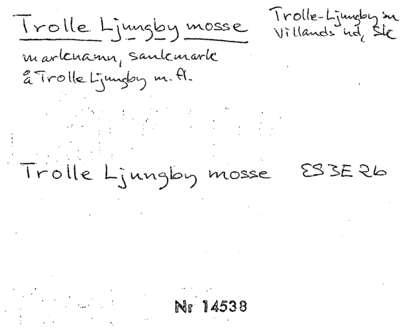 Trolle Ljungby mosse
Trolle-Ljungby sn
Villands hd, Sk
marknamn, sankmark
å Trolle Ljungby m. fl.
Trolle Ljungby mosse ES 3E 2b
Nr 14538